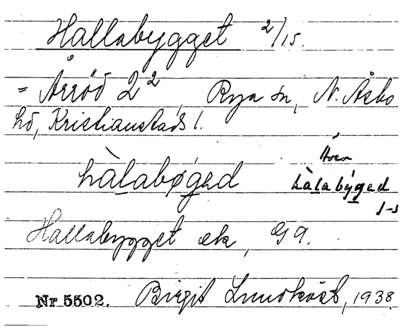 Hallabygget 2/15.
= Årröd 2², Rya sn, N. Åsbo
hd, Kristianstads l.
hàlabýgad
hàlabýgad
Hallabygget ek, G9.
Nr 5502. Birgit Lundkvist, 1938